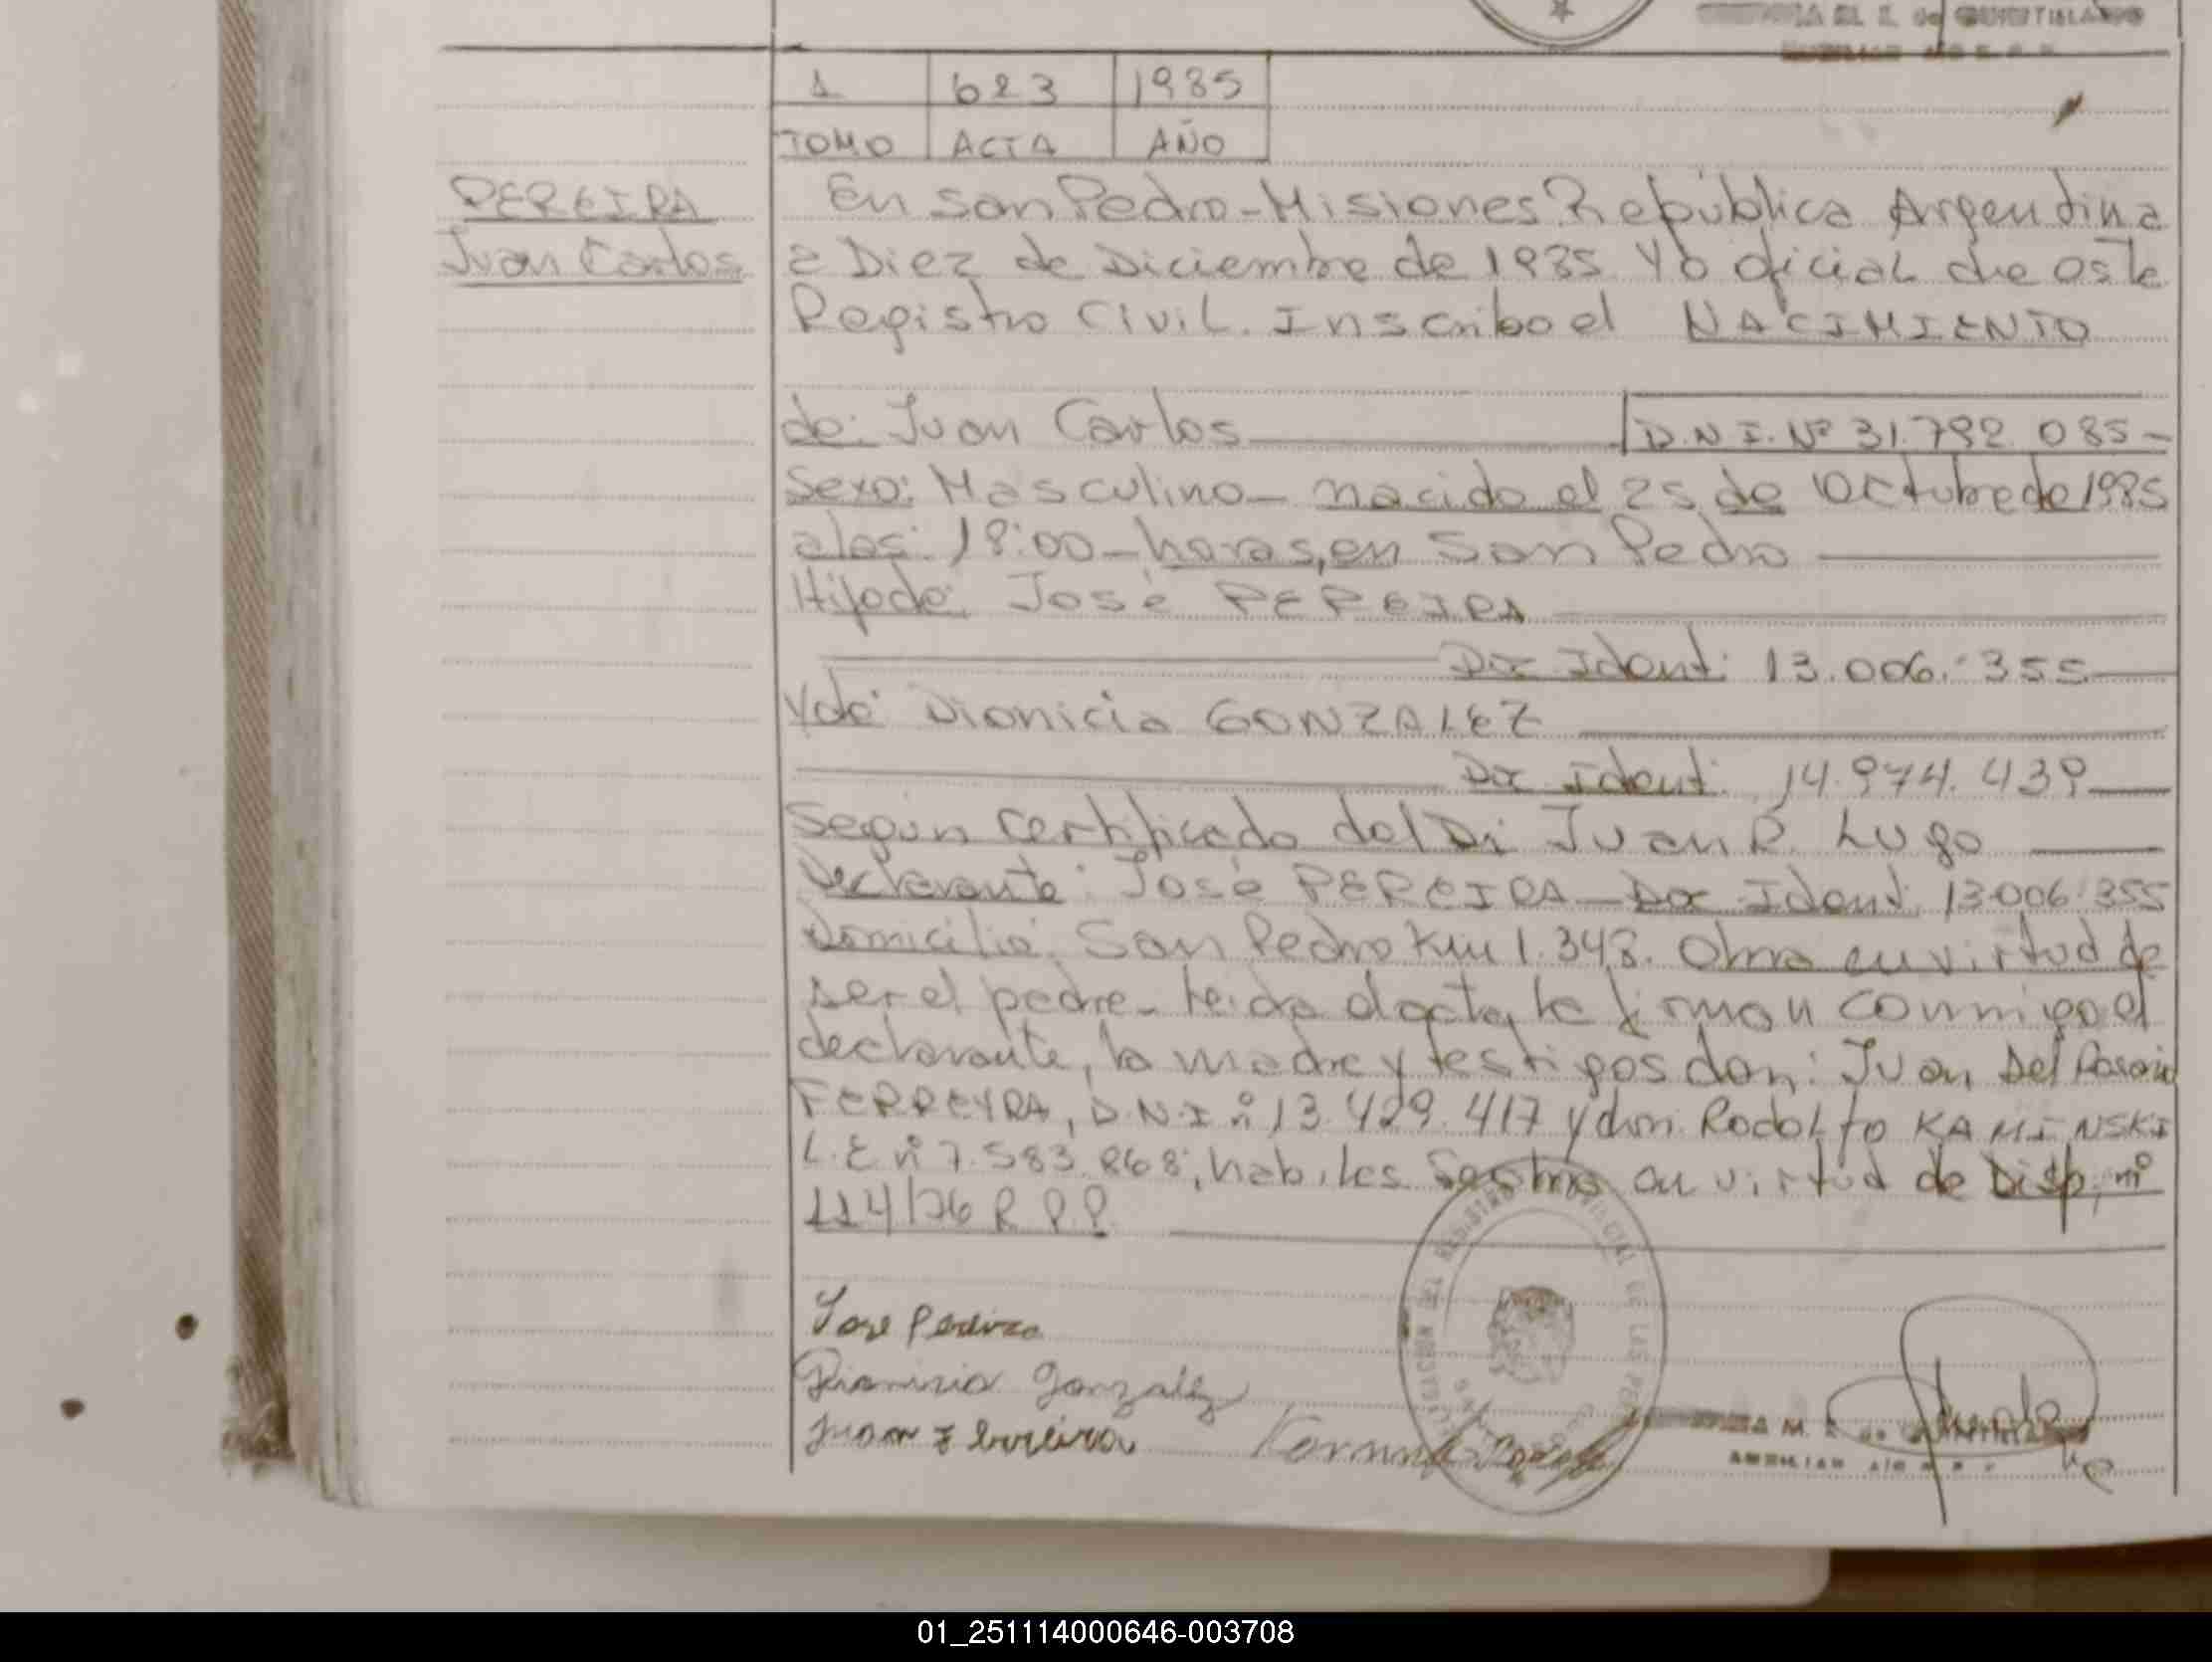 1 623 1985
TOMO ACTA AÑO
PEREIRA
Juan Carlos
En San Pedro - Misiones República Argentina
a Diez de Diciembre de 1985 Yo oficial de este
Registro Civil. Inscribo el NACIMIENTO
de: Juan Carlos D.N.I. Nº 31.792.085-
Sexo: Masculino - nacido el 25 de Octubre de 1985
a las: 18:00 - horas, en San Pedro
Hijo de: José PEREIRA
Doc Ident: 13.006.355
Y de: Dionicia GONZALEZ
Doc Ident: 14.974.439
Según certificado del Dr Juan R. Lugo
Declarante: José PEREIRA - Doc Ident: 13.006.355
Domicilio: San Pedro Km 1.348. Obra en virtud de
ser el padre - Leida el acta, la firman conmigo el
declarante, la madre y testigos don: Juan Del Rosario
FERREYRA, D.N.I nº 13.429.417 y don Rodolfo KAMINSKI
L.E nº 7.583.868, habiles en virtud de Disp. nº
114/76 R.P.P.
Jose Pereira
Dionicia Gonzalez
Juan Ferreira
01_251114000646-003708